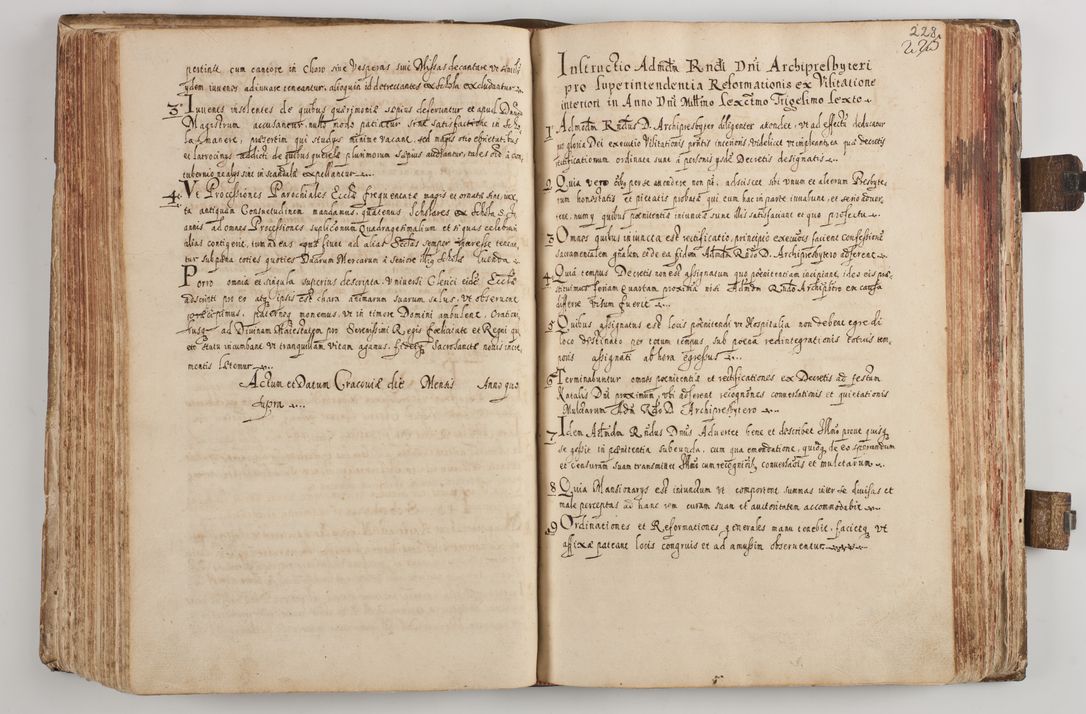 pertinet cum cantore in Choro siue Vesperas, siue Missas decantare vt simili
ijdem iuuenes adiuuare teneantur, alioquin id detrectantes ex Schola excludantur
3 Iuuenes insolentes de quibus quaerimoniae saepius deferuntur et apud Dnum
Magistrum accusantur, nullo modo patiatur sine satisfactione in Scho
la Manere, praesertim qui studijs minime vacant, sed magis otio ebrietatibus
et latrocinijs addicti de quibus querelae plurimorum saepius audiantur, tales
tubernio ne alijs sint in scandalum expellantur
4 Vt Processiones Parochiales Eccliae frequentatae magis et ornatae sint, iux
ta antiquam Consuetudinem mandamus, quatenus Scholares ex Schola S: Jo
annis ad omnes Processiones supplicionum Quadragesimalium et si quas celebrari
alias contigerit, tum ad eas quae fiunt ad alias Ecclias semper interesse tenean
tur sub poena toties quoties Duarum Marcarum à Seniore Schola luenda
Porro omnia et singula superius descripta Vniuersi Clerici eidem Eccliae
adscripti pro eo atq Ipsis est chara animarum suarum salus, vt obseruent
praecipimus, paternos monemus, vt in timore Domini ambulent, Oratio
nusq ad Diuinam Maiestatem pro Serenissimi Regis foelicitate et Regni qu
eto statu incumbant vt tranquillam vitam agamus,
mentis laetemur
Actum et Datum Cracouiae die Mensis Anno quo
supra
228
Instructio Admdm Rndi Dni Archipresbyteri
pro superintendentia Reformationis ex Visitatione
interiori in Anno Dni Millmo Sexctmo Trigesimo Sexto
1 Admdm Rndus D. Archipresbyter diligenter attendet, vt ad effectū deducatur
pro gloria Dei executio Visitationis pntis intentionis, videlicet vt impleantur ea quae decretis
rectificationum ordinata sunt à personis ipsis Decretis designatis
2 Quia vero per se attendere non pt, adsciscet sibi vnum et alterum Presbyte
rum honestatis et pietatis probatae qui eum hac in parte inuabunt, et serio obser
uent, num ij quibus poenitentia iniuncta sunt illis satisfaciant et quo profectu
3 Omnes quibus iniuncta est rectificatio, principio executiōis facient confessionē
sacramentalem gnalem et de ea fidem Admdm Rndo D. Archipresbytero adferent
4 Quia tempus Decretis non est assignatum quo poenitentiam incipiant, ideo eis prae
stituimus feriam quartam proximā nisi Admdm Rndo Archipbro ex causa
differre visum fuerit
5 Quibus assignatus est locis poenitendi vt Hospitalia non debent egredi
loco destinato per totum tempus sub poena redintegrationis totius tem
poris assignati ab hora egressus
6 Terminabuntur omnes poenitentiae et rectificationes ex Decretis ad festum
Natalis Dni proximum, vbi adferent recognōnes conuersationis et quietationis
Mulctarum Admdm Rndo D. Archipresbytero
7 Idem Admdm Rndus Dnus Aduertet bene et describet Illmo prout quisq
se gessit in poenitentia subeunda, cum qua emendatione, quidq de eo sperandum
et Censuram suam transmittet Illmo cum recognitiōib conuersatiōis et mulctarum
8 Quia Mansionarijs est iniunctum vt comportent summas inter se diuisas et
male perceptas ad hanc rem curam suam et autoritatem accommodabit
9 Ordinationes et Reformationes generales manu tenebit, facietq vt
affixae pateant locis congruis et ad amussim obseruentur